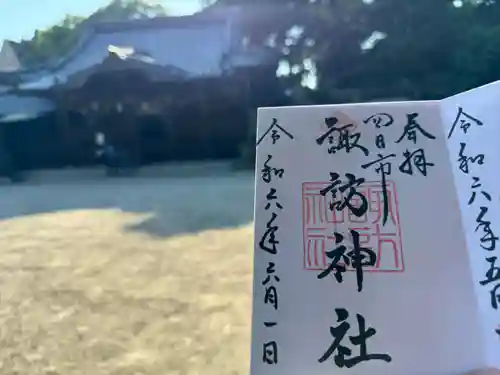 奉拝
四日市
諏訪神社
令和六年六月一日
令和六年五月